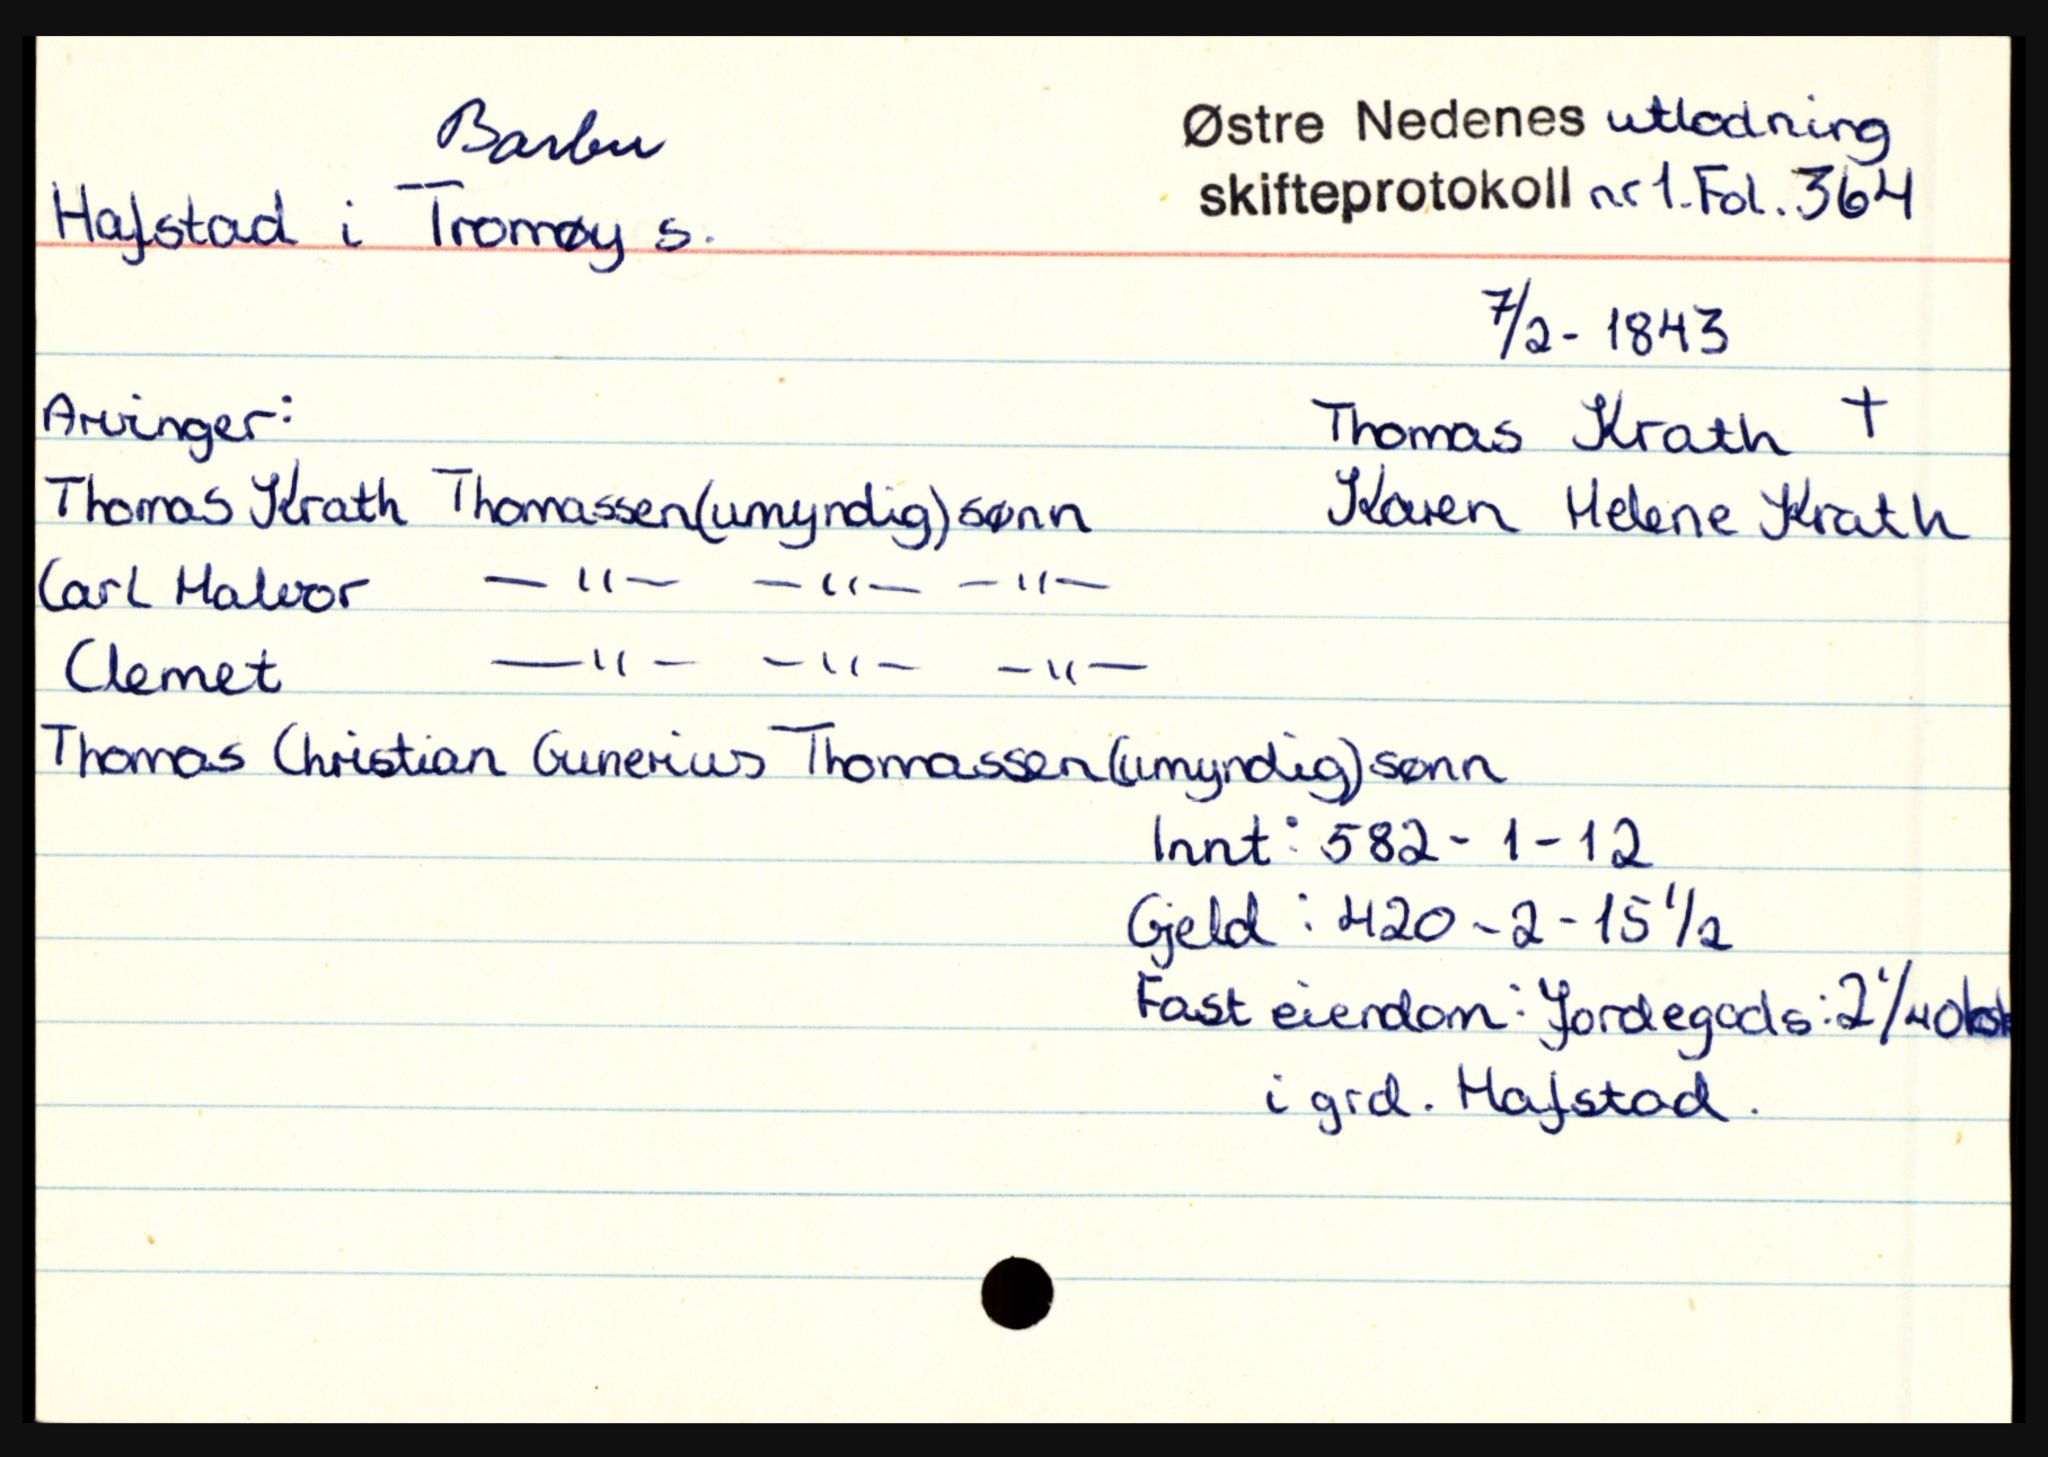 Barbu
Hafstad i Tromøy s.
Østre Nedenes utlodning
skifteprotokoll nr 1. Fol. 364
7/2 - 1843
Arvinger:
Thomas Krath †
Thomas Krath Thomassen (umyndig) sønn
Karen Helene Krath
Carl Halvor —"— —"— —"—
Clemet —"— —"— —"—
Thomas Christian Gunerius Thomassen (umyndig) sønn
Innt: 582 - 1 - 12
Gjeld: 420 - 2 - 15 1/2
Fast eiendom: Jordegods: 2 1/40
i grd. Hafstad.